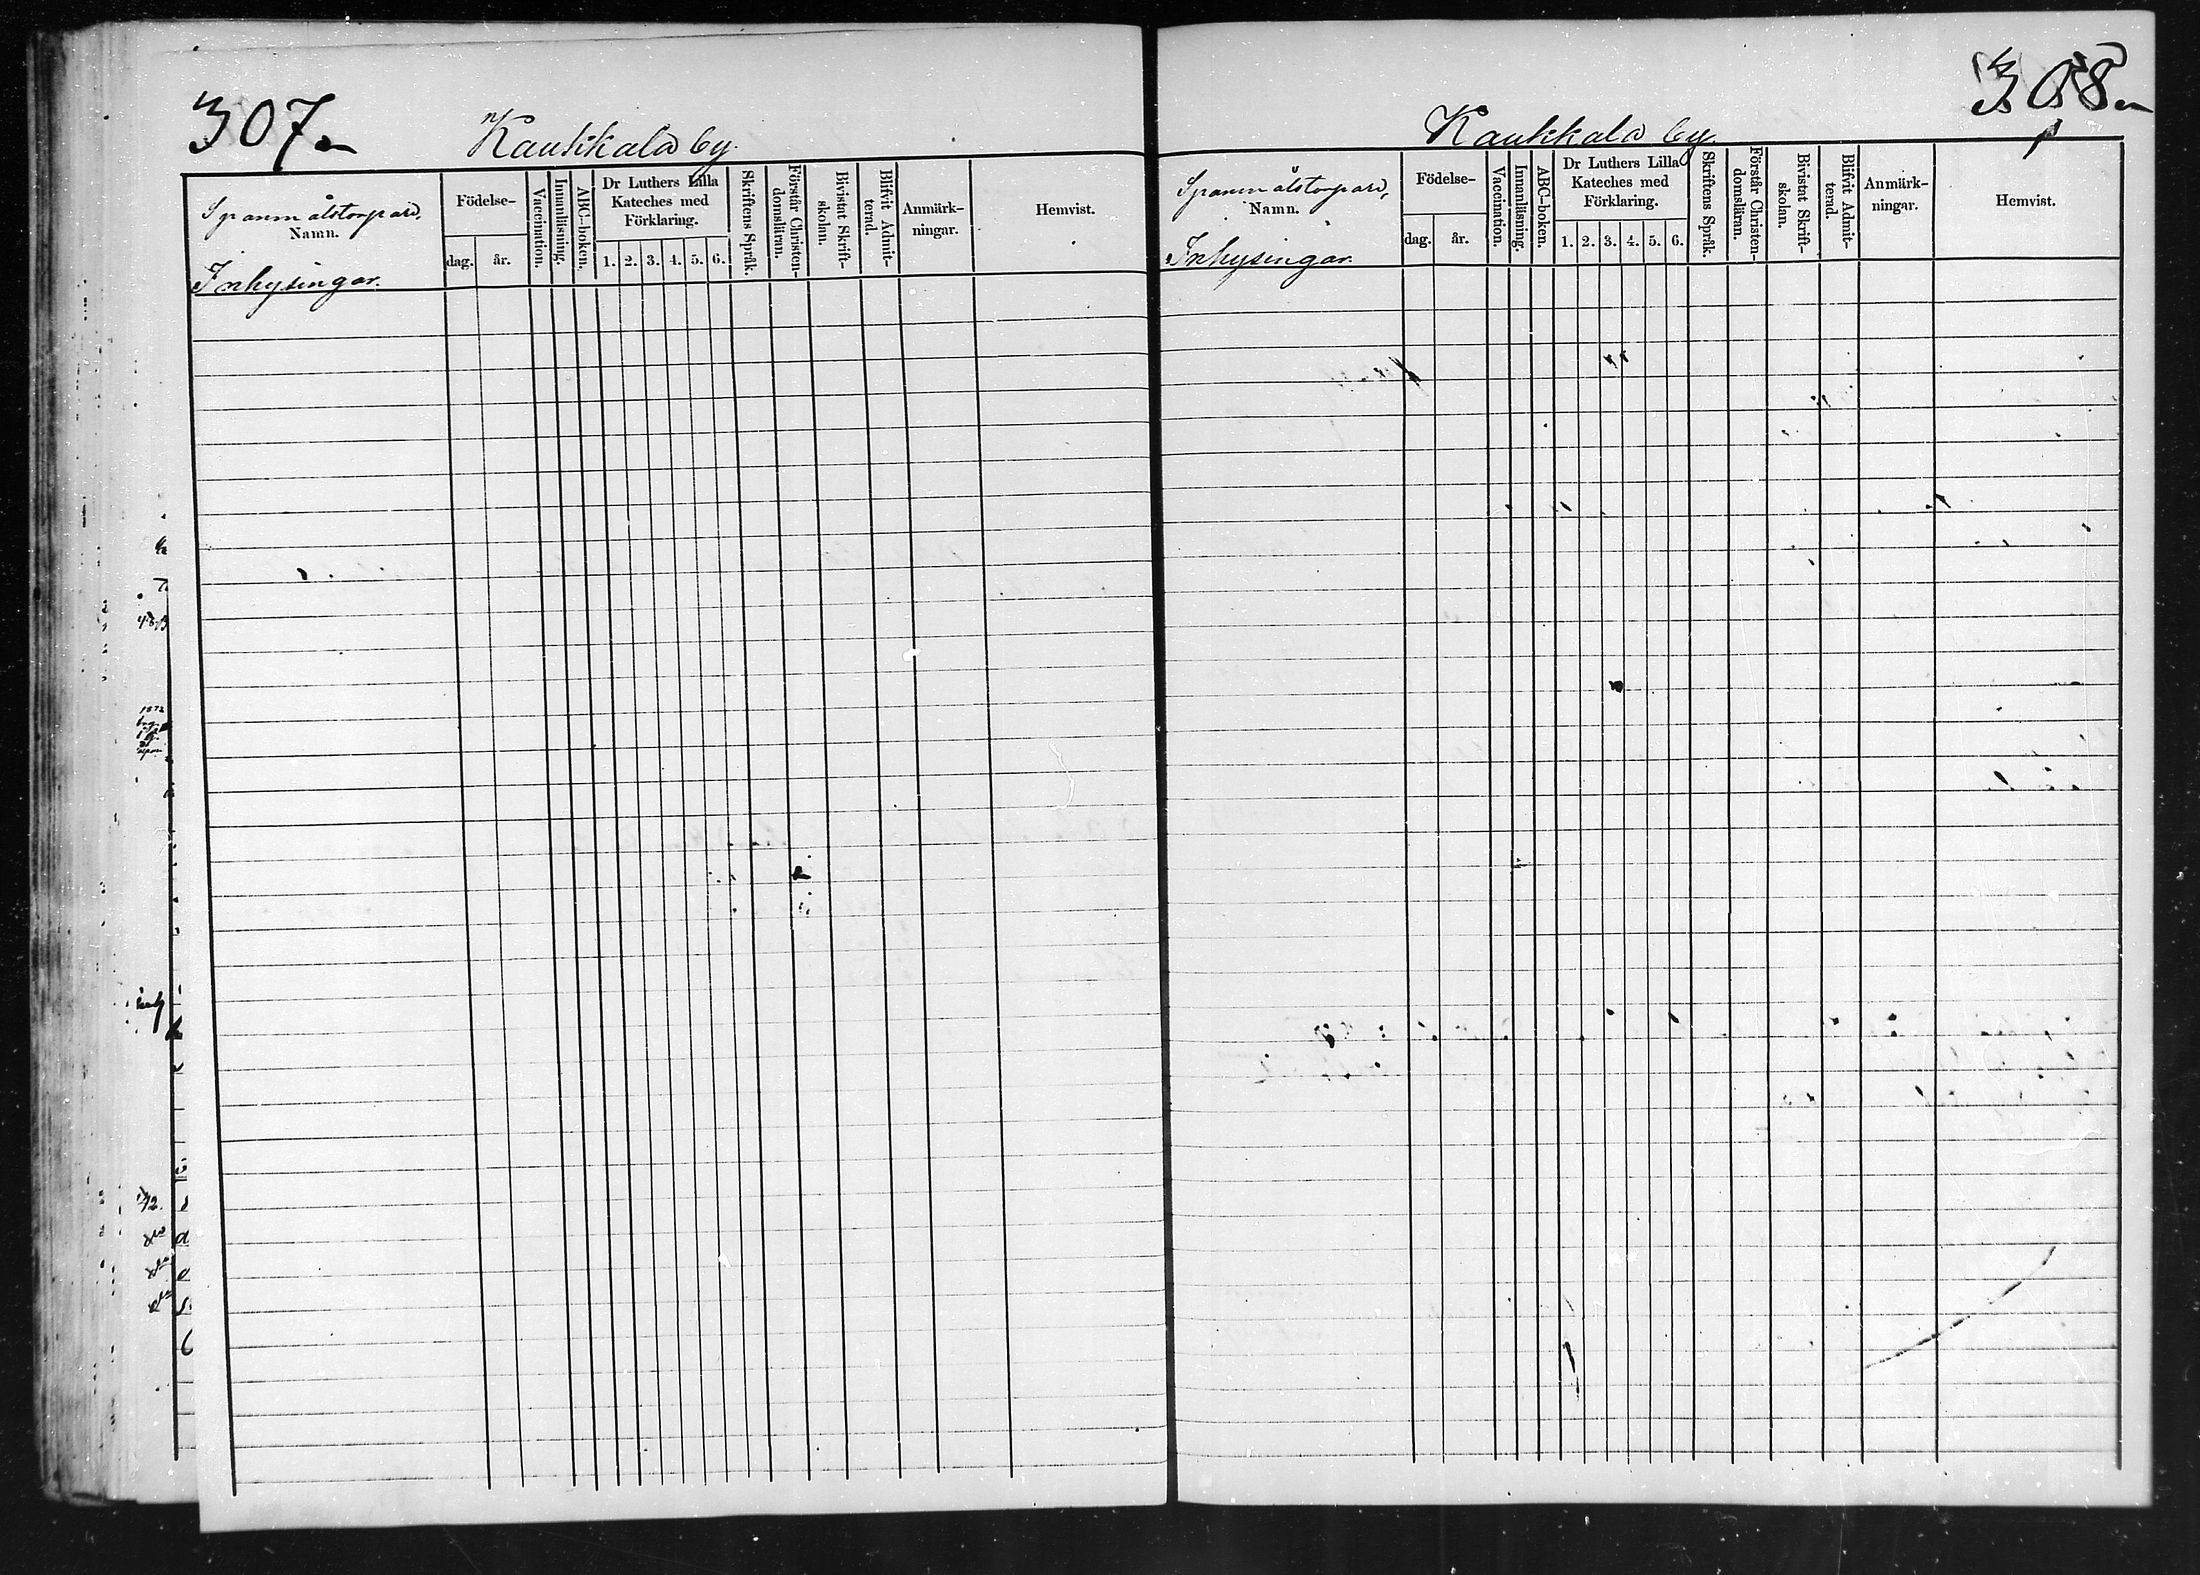 307.
Kaukkala by.
Spanmålstorpare,
Namn.
Inhysingar.
Födelse-
dag.
år.
Vaccination.
Innanläsning.
ABC-boken.
Dr Luthers Lilla
Kateches med
Förklaring.
1. 2. 3. 4. 5. 6.
Skriftens Språk.
Förstår Christen-
domsläran.
Bivistat Skrift-
skolan.
Blifvit Admit-
terad.
Anmärk-
ningar.
Hemvist.
308.
Kaukkala by.
Spanmålstorpare,
Namn.
Inhysingar.
Födelse-
dag.
år.
Vaccination.
Innanläsning.
ABC-boken.
Dr Luthers Lilla
Kateches med
Förklaring.
1. 2. 3. 4. 5. 6.
Skriftens Språk.
Förstår Christen-
domsläran.
Bivistat Skrift-
skolan.
Blifvit Admit-
terad.
Anmärk-
ningar.
Hemvist.